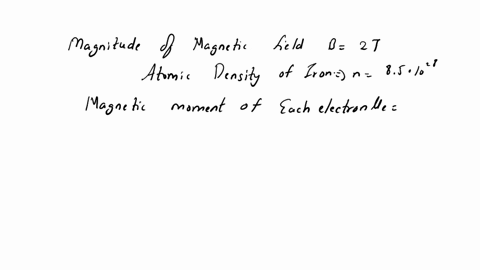 Magnitude of Magnetic field B = 2T
Atomic Density of Iron ⇒ n = 8.5 · 10²⁸
Magnetic moment of Each electron μe =